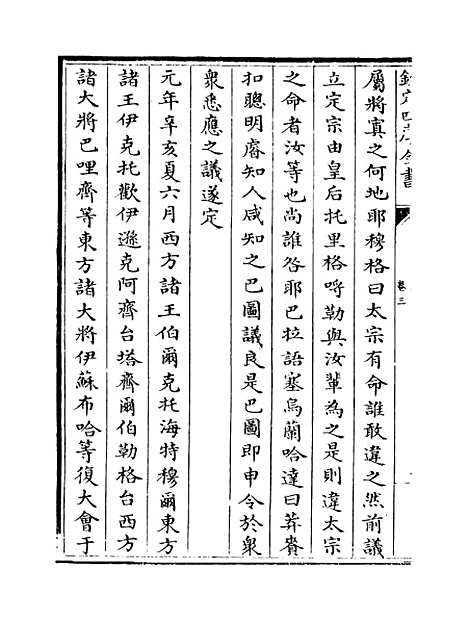 欽定四庫全書
卷三
屬將寘之何地耶穆格曰太宗有命誰敢違之然前議
立定宗由皇后托里格呼勒與汝輩為之是則違太宗
之命者汝等也尚誰咎耶巴拉語塞烏蘭哈達曰莽賚
扣聰明睿知人咸知之巴圖議良是巴圖即申令於衆
衆悉應之議遂定
元年辛亥夏六月西方諸王伯爾克托海特穆爾東方
諸王伊克托歡伊遜克阿齊台塔齊爾伯勒格台西方
諸大將巴哩齊等東方諸大將伊蘇布哈等復大會于